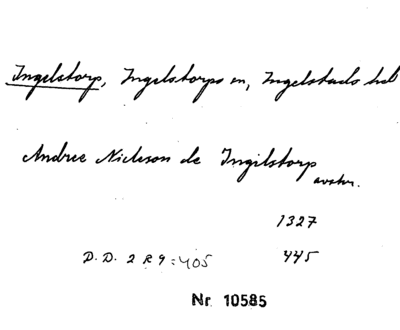 Ingelstorp, Ingelstorps sn, Ingelstads hd
Andree Nicleson de Ingilstorp
avskr.
1327
D. D. 2 R 9:405 445
Nr 10585